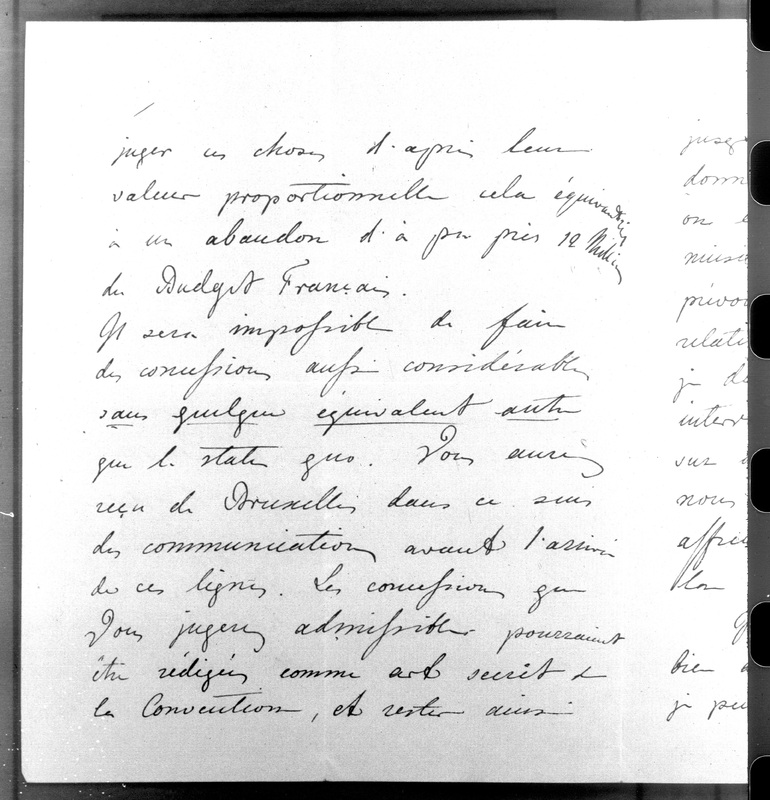 juger ces choses d'après leur
valeur proportionnelle cela équivaudrait
à un abandon d'à peu près 12 Millions
du Budget Français.
Il sera impossible de faire
des concessions aussi considérables
sans quelque équivalent autre
que le statu quo. Vous aurez
reçu de Bruxelles dans ce sens
des communications avant l'arrivée
de ces lignes. Les concessions que
Vous jugerez admissibles pourraient
être rédigées comme art secrèt de
la Convention, et rester ainsi
donn
on
relati
je
interv
sur
nous
bien
je peu